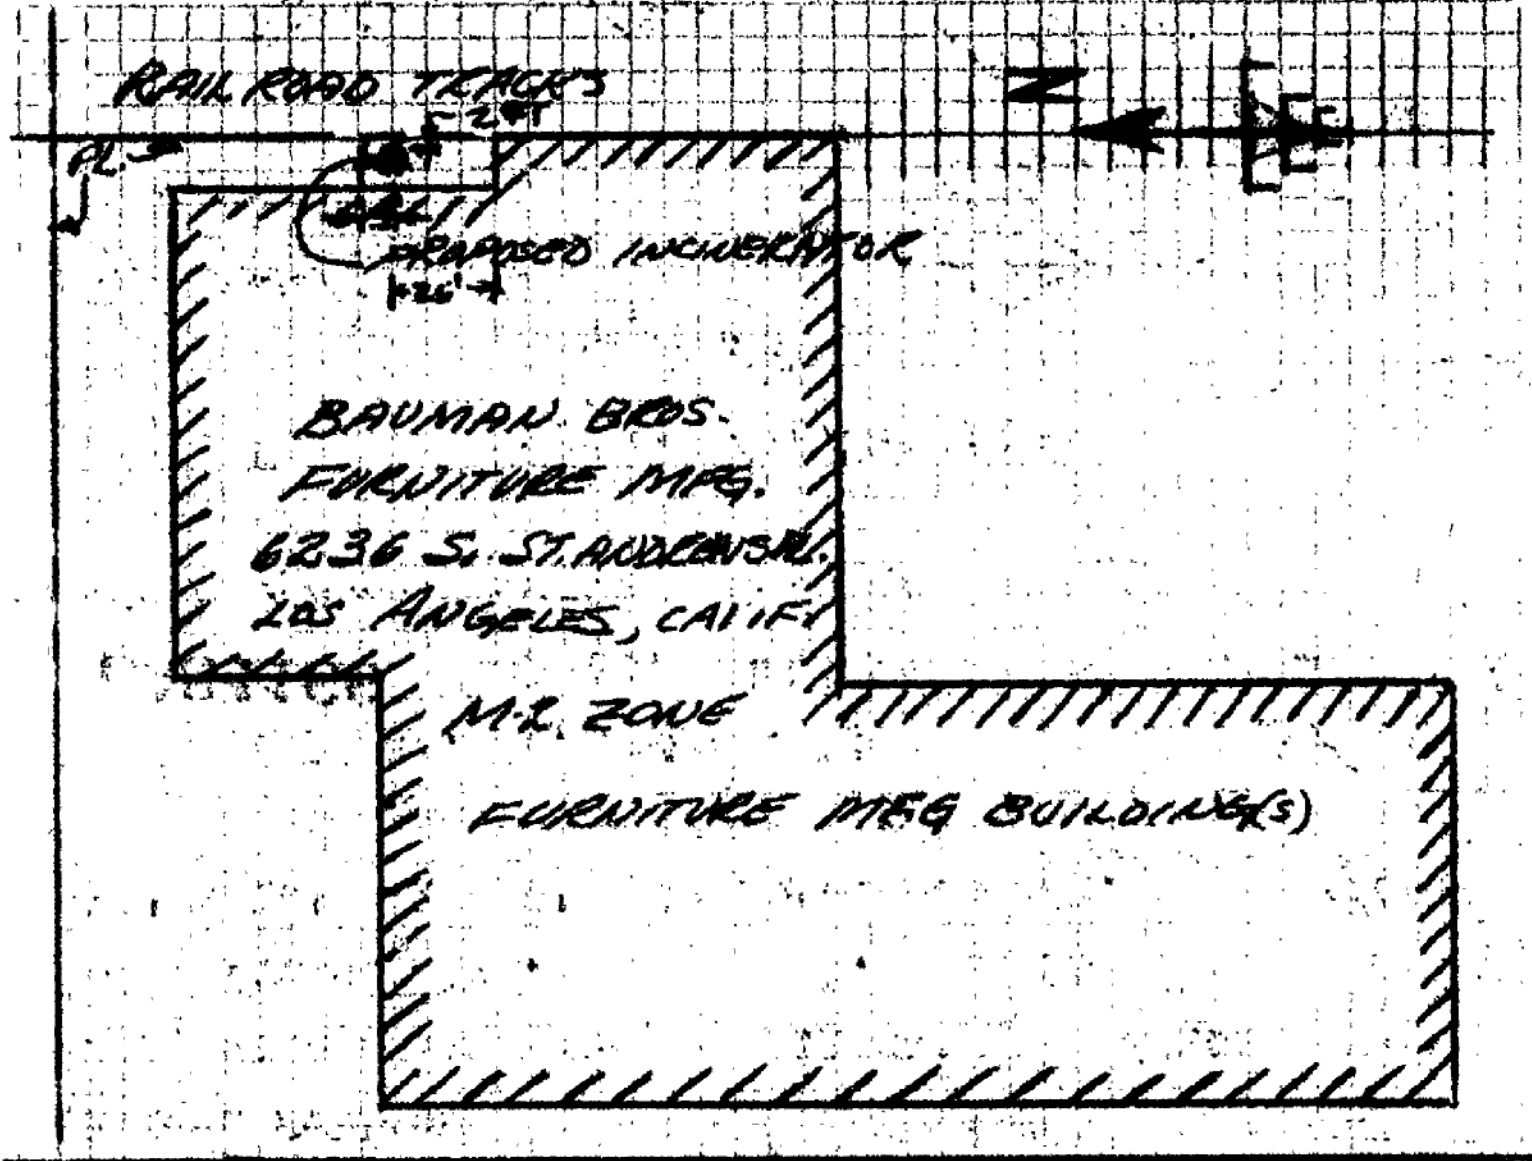 RAIL ROAD TRACKS
2 FT
PL.
N
PROPOSED INCINERATOR
26'
BAUMAN BROS.
FURNITURE MFG.
6236 S. ST. ANDREWS PL.
LOS ANGELES, CALIF.
M-2 ZONE
FURNITURE MFG BUILDING(S)